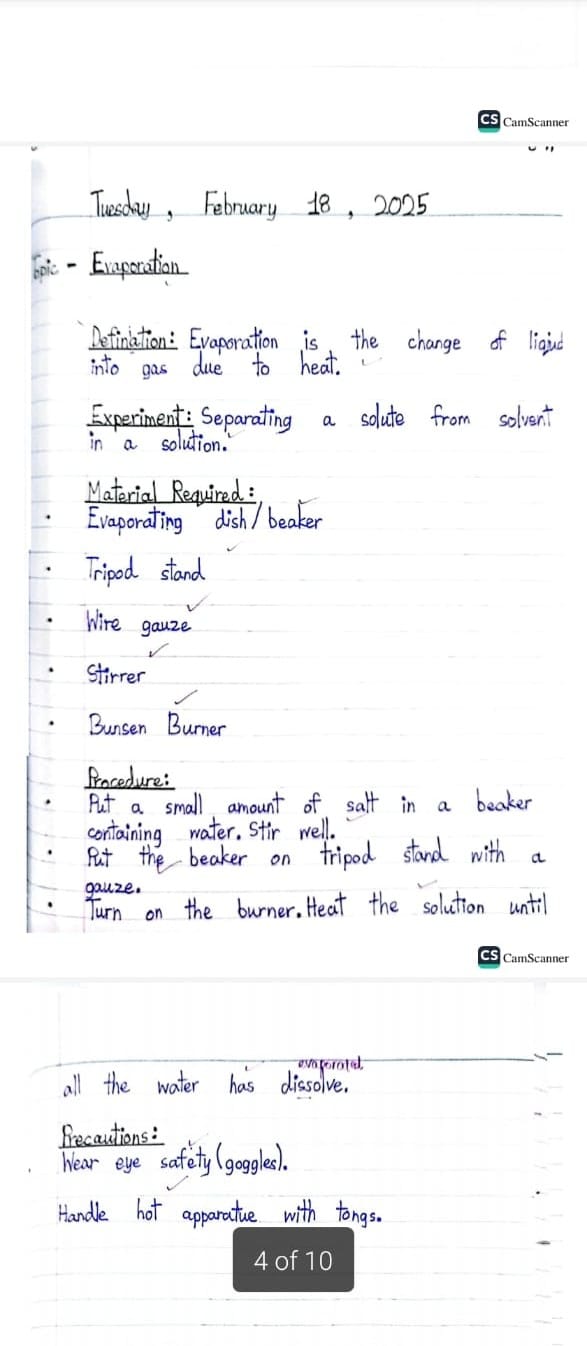 CS CamScanner
Tuesday, February 18, 2025
Topic - Evaporation
Defination: Evaporation is the change of liqiud
into gas due to heat.
Experiment: Separating a solute from solvent
in a solution.
Material Required:
• Evaporating dish/beaker
• Tripod stand
• Wire gauze
• Stirrer
• Bunsen Burner
Procedure:
• Put a small amount of salt in a beaker
containing water. Stir well.
• Put the beaker on tripod stand with a
gauze.
• Turn on the burner. Heat the solution until
CS CamScanner
evaporated
all the water has dissolve.
Precautions:
Wear eye safety (goggles).
Handle hot apparatue with tongs.
4 of 10